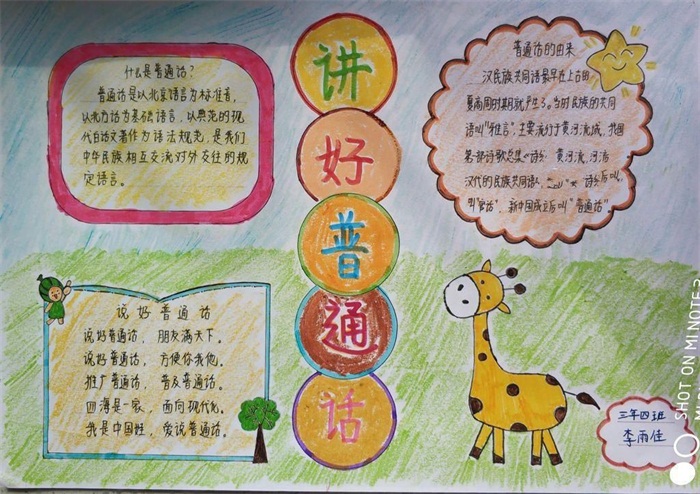 讲
好
普
通
话
什么是普通话?
普通话是以北京语言为标准音,
以北方话为基础语言,以典范的现
代白话文著作为语法规范,是我们
中华民族相互交流对外交往的规
定语言。
普通话的由来
汉民族共同语最早在上古的
夏商周时期就产生了。当时民族的共同
语叫"雅言",主要流行于黄河流域,我国
第一部诗歌总集《诗 黄河流
汉代的民族共同语
叫"官话",新中国成立后叫"普通话"。
说好普通话
说好普通话,朋友满天下。
说好普通话,方便你我他。
推广普通话,普及普通话。
四海是一家,面向现代化。
我是中国娃,爱说普通话。
三年四班
李雨佳
SHOT ON MI NOTE 3